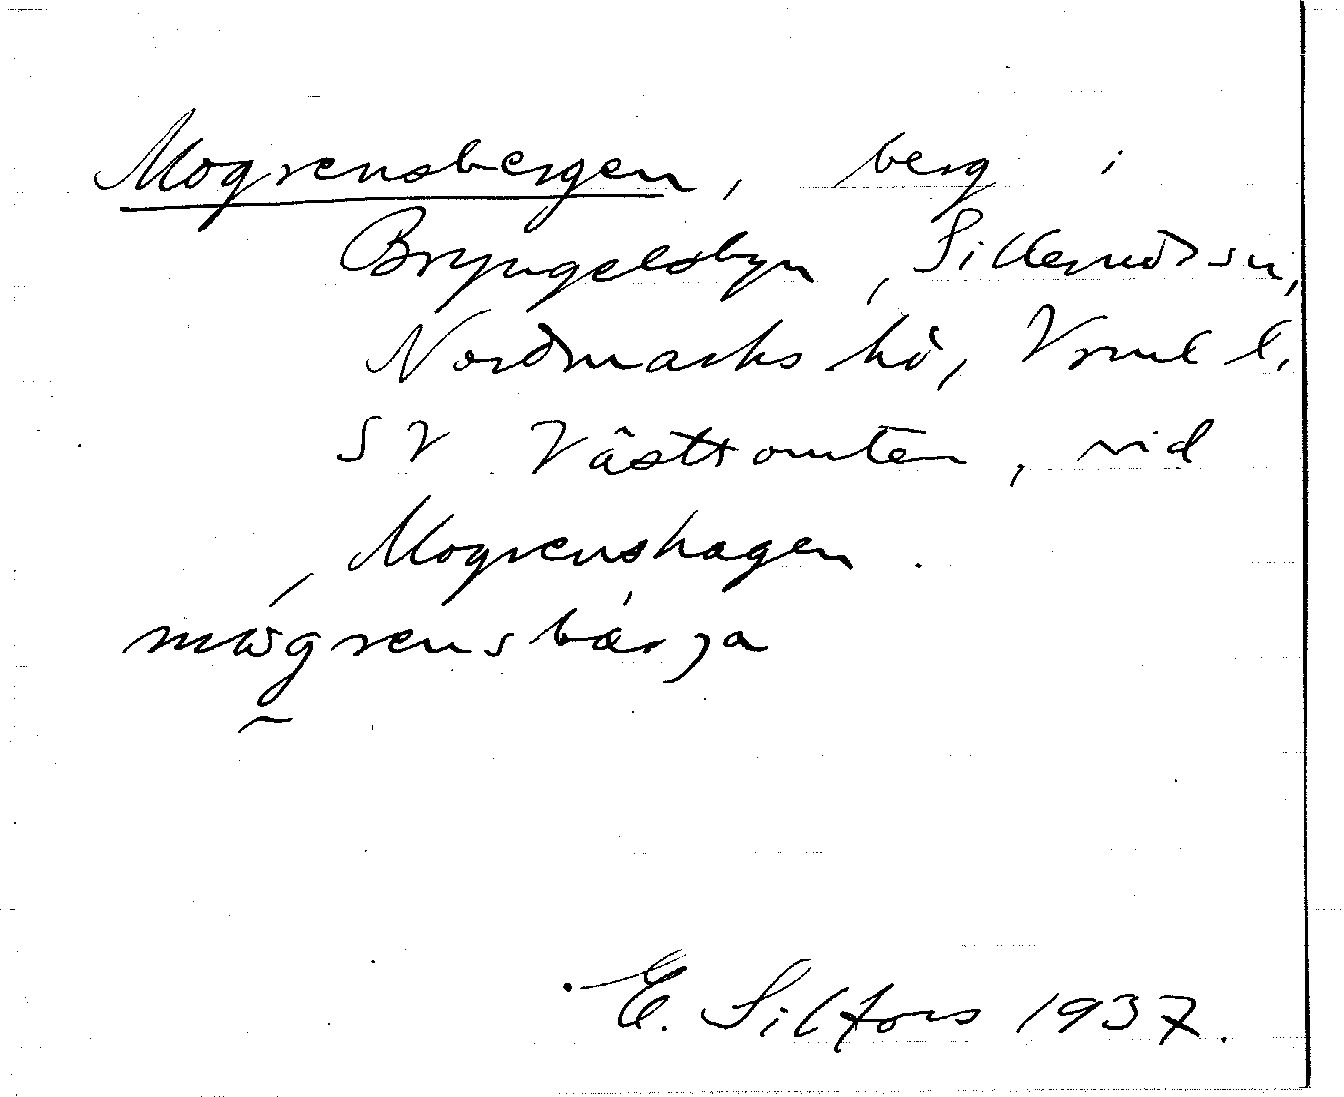 Mogrensbergen, berg i
Bryngelsbyn, Silleruds sn,
Nordmarks hd, Vrml l.
SV Västtomten, vid
Mogrenshagen.
mɷgrensbærja
E. Silfors 1937.